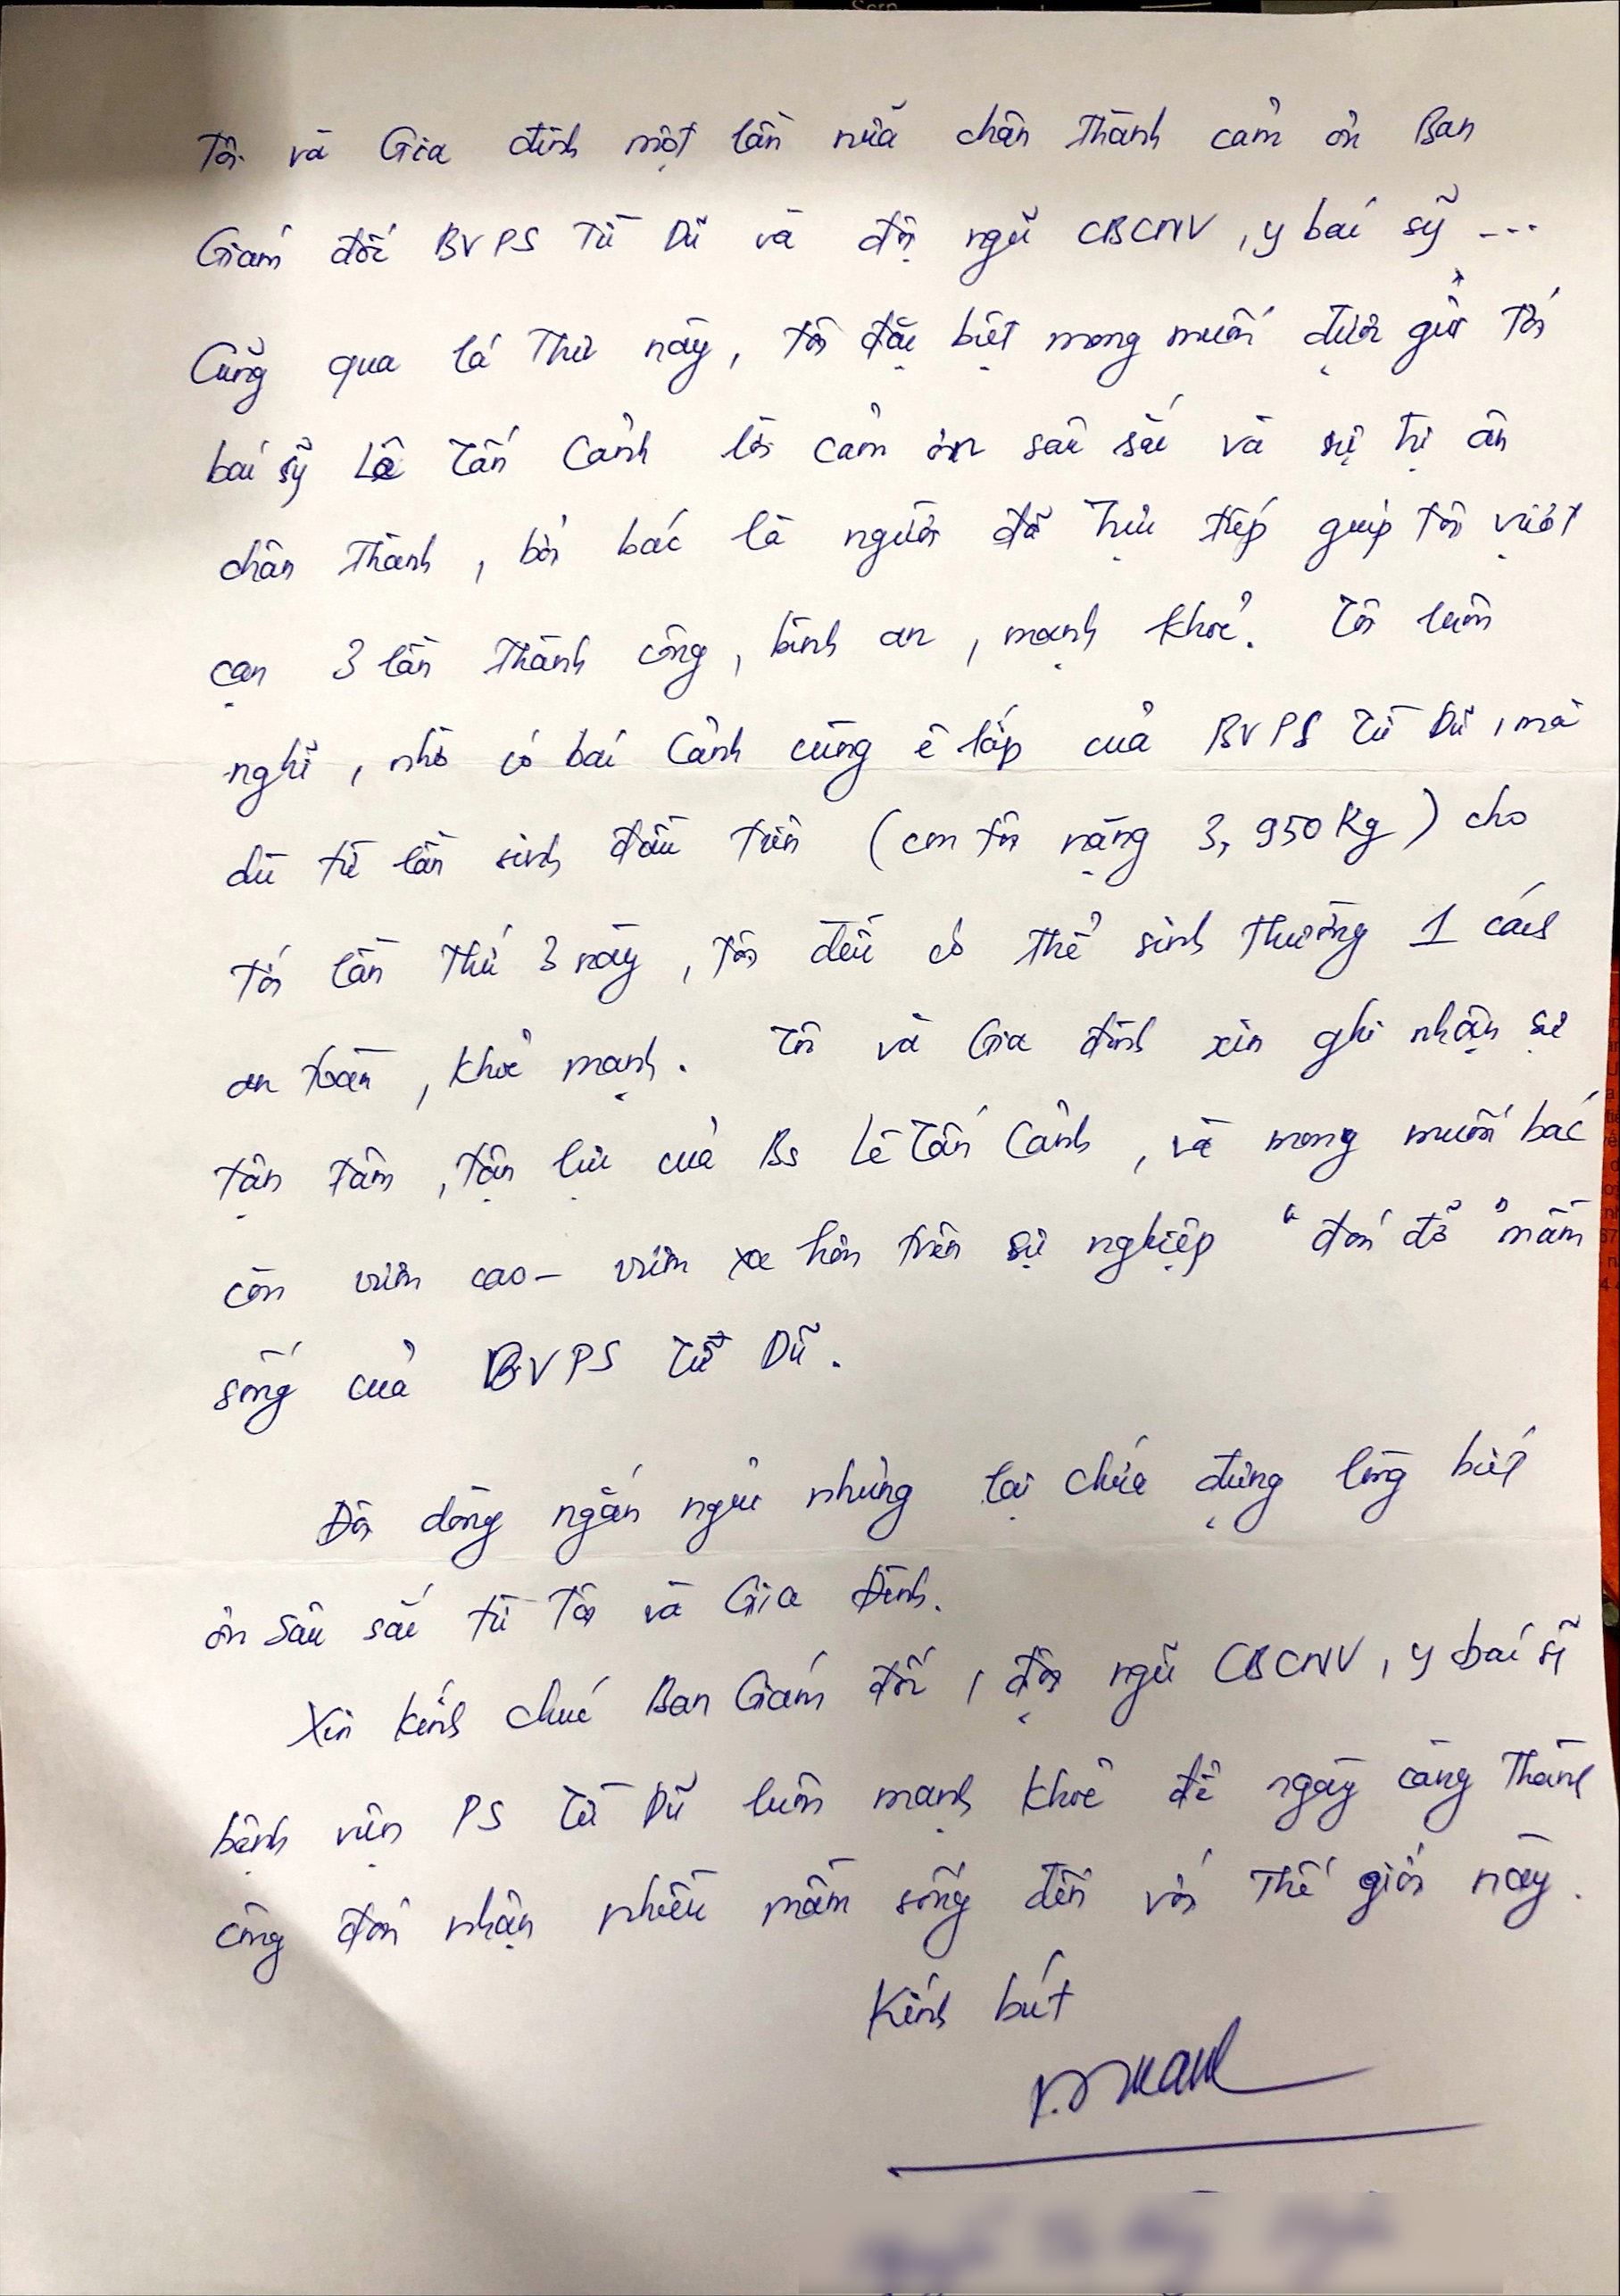 Tôi và Gia đình một lần nữa chân thành cảm ơn Ban
Giám đốc BVPS Từ Dũ và đội ngũ CBCNV, y bác sỹ ...
Cũng qua lá thư này, tôi đặc biệt mong muốn được gửi tới
bác sỹ Lê Tấn Cảnh lời cảm ơn sâu sắc và sự tri ân
chân thành, bởi bác là người đã trực tiếp giúp tôi vượt
cạn 3 lần thành công, bình an, mạnh khoẻ. Tôi luôn
nghĩ, nhờ có bác Cảnh cùng ê kíp của BVPS Từ Dũ, mà
dù từ lần sinh đầu tiên (con tôi nặng 3,950Kg) cho
tới lần thứ 3 này, tôi đều có thể sinh thường 1 cách
an toàn, khoẻ mạnh. Tôi và Gia đình xin ghi nhận sự
tận tâm, tận lực của Bs Lê Tấn Cảnh, và mong muốn bác
còn vươn cao - vươn xa hơn trên sự nghiệp "đón đỡ" mầm
sống của BVPS Từ Dũ.
Đôi dòng ngắn ngủi nhưng lại chứa đựng lòng biết
ơn sâu sắc từ Tôi và Gia Đình.
Xin kính chúc Ban Giám đốc, đội ngũ CBCNV, y bác sĩ
bệnh viện PS Từ Dũ luôn mạnh khoẻ để ngày càng thành
công đón nhận nhiều mầm sống đến với thế giới này.
Kính bút